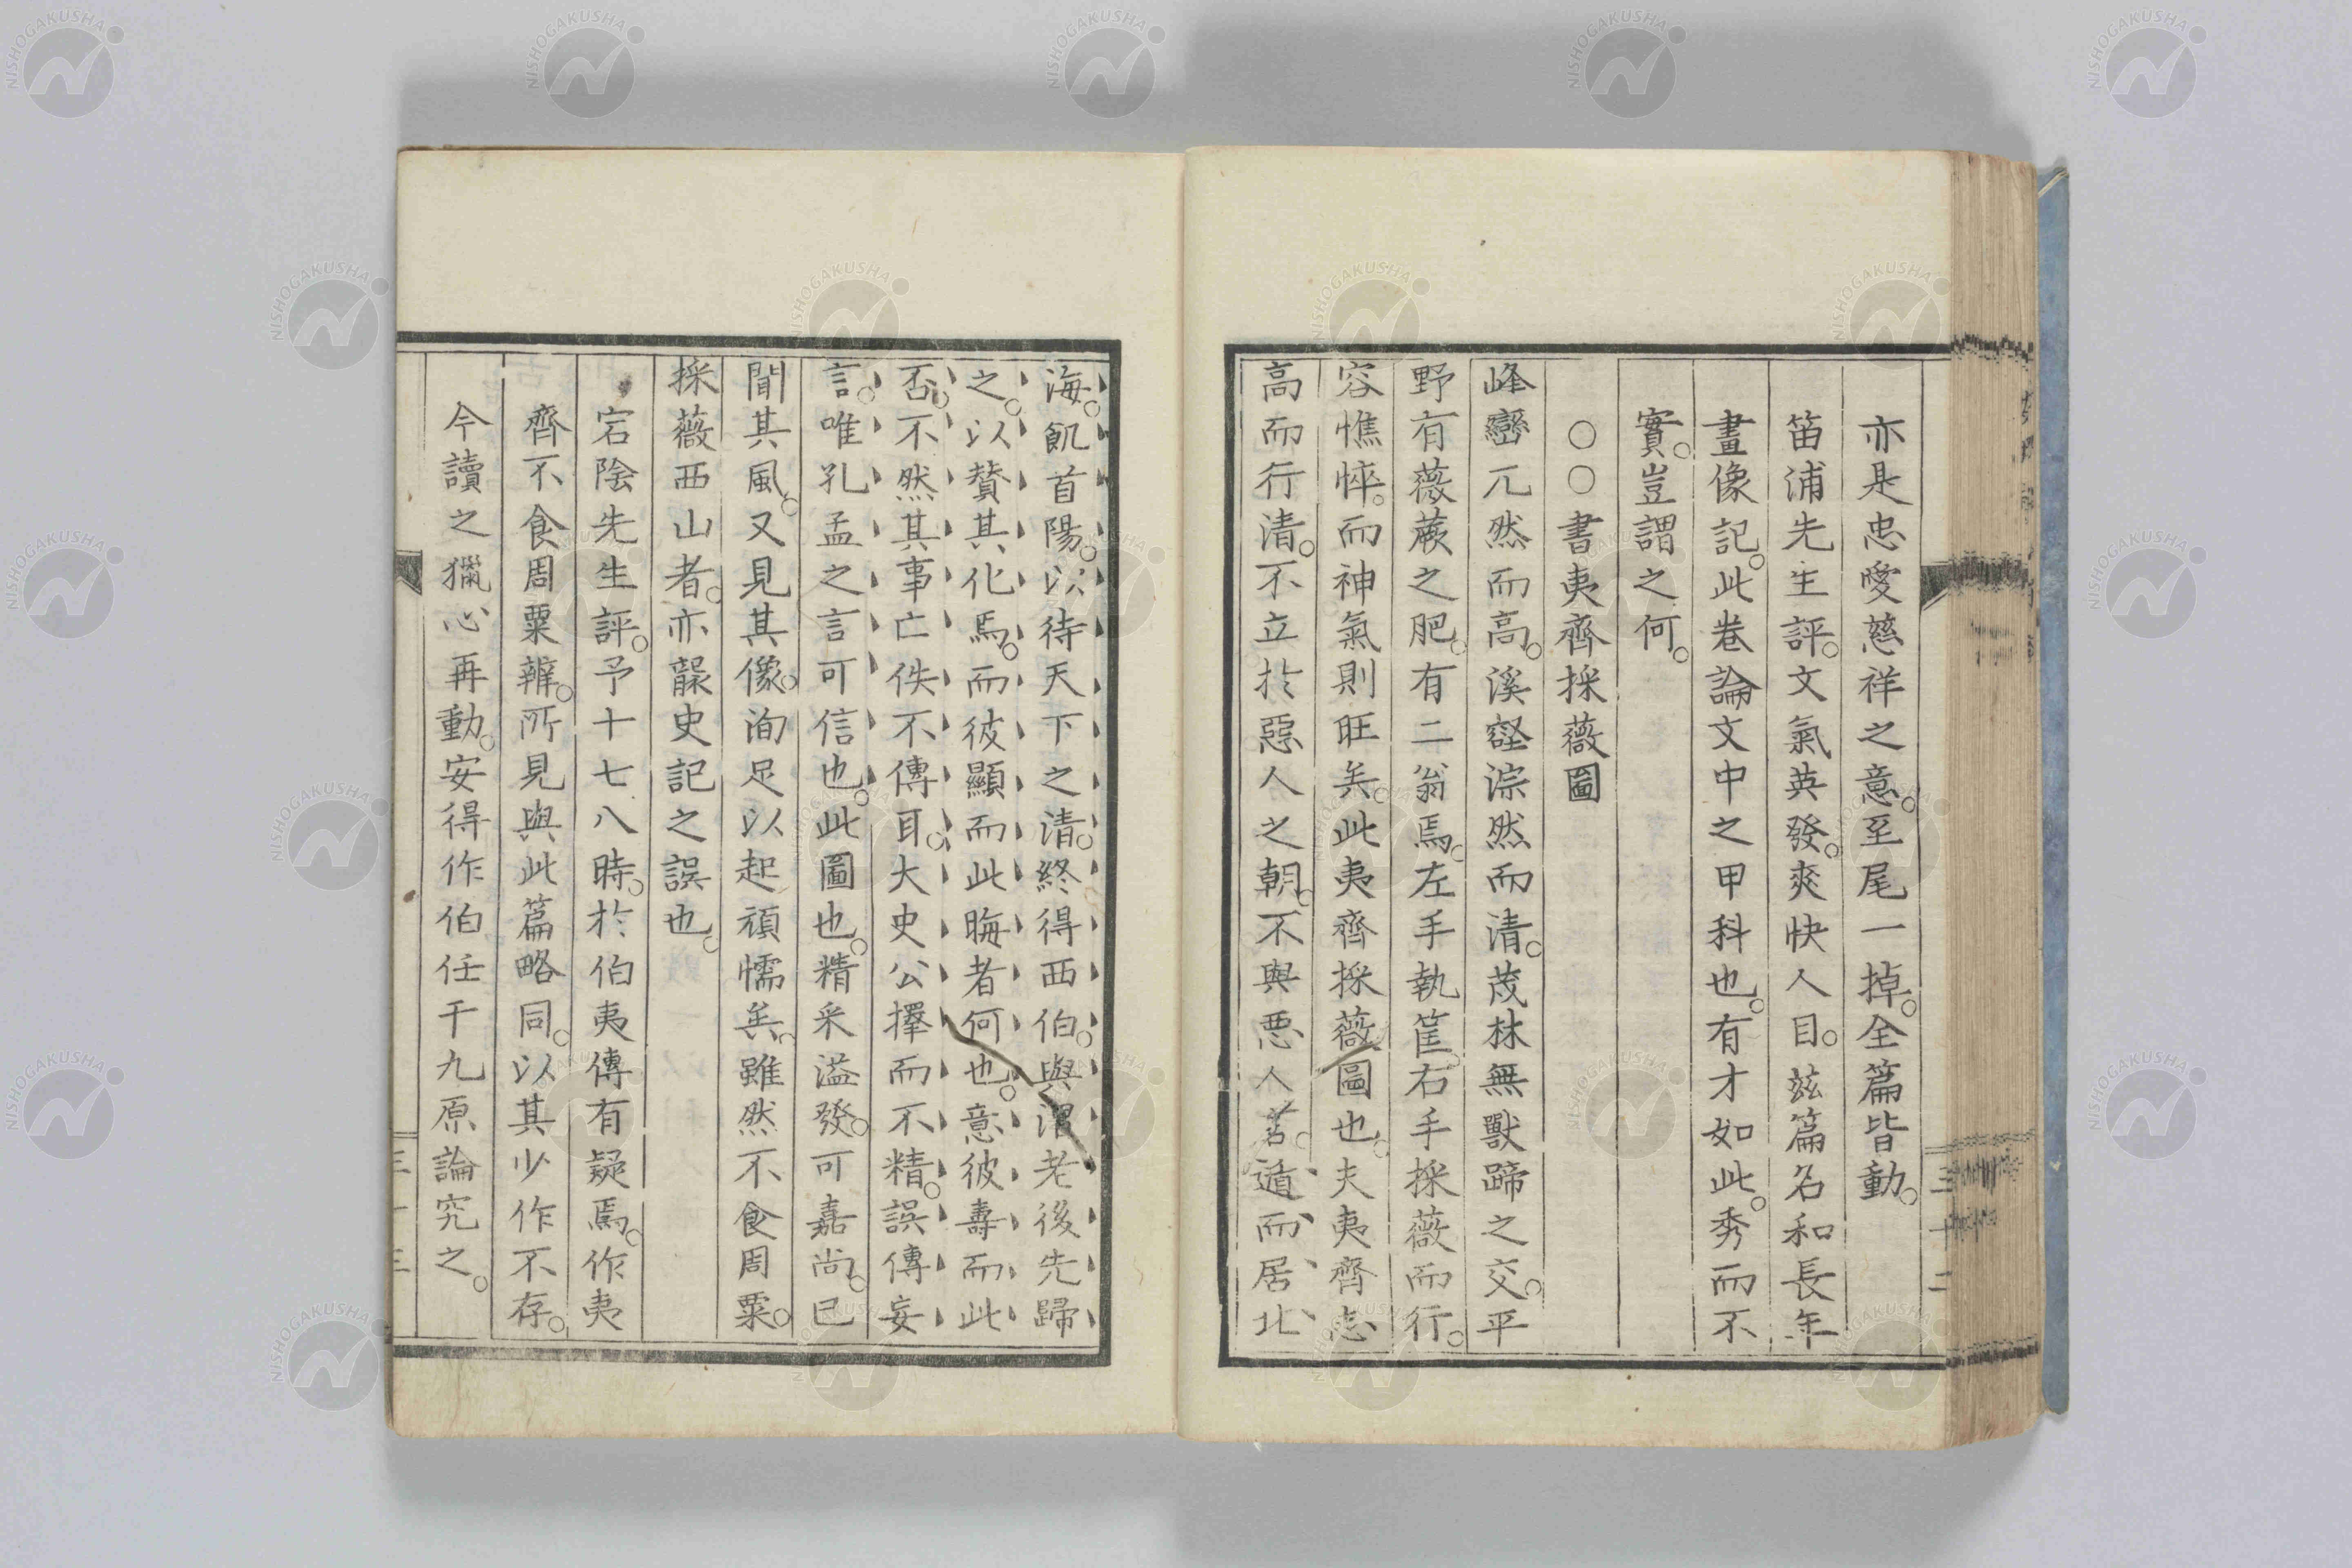 亦是忠愛慈祥之意。至尾一掉。全篇皆動。
笛浦先生評。文氣英發。爽快人目。茲篇名和長年
畫像記。此卷論文中之甲科也。有才如此。秀而不
實。豈謂之何。
○○書夷齊採薇圖
峰巒兀然而高。溪壑淙然而清。茂林無獸蹄之交。平
野有薇蕨之肥。有二翁焉。左手執筐。右手採薇而行。
容憔悴。而神氣則旺矣。此夷齊採薇圖也。夫夷齊志
高而行清。不立於惡人之朝。不與惡人言。遁而居北
海。飢首陽。以待天下之清。終得西伯。與渭老後先歸
之。以贊其化焉。而彼顯而此晦者何也。意彼壽而此
否。不然其事亡佚不傳耳。大史公擇而不精。誤傳妄
言。唯孔孟之言可信也。此圖也。精采溢發。可嘉尚。已
聞其風。又見其像。洵足以起頑懦矣。雖然不食周粟。
採薇西山者。亦龍史記之誤也。
宕陰先生評。予十七八時。於伯夷傳有疑焉。作夷
齊不食周粟辨。所見與此篇略同。以其少作不存。
今讀之獵心再動。安得作伯任于九原論究之。
三十二
三十三
NISHOGAKUSHA